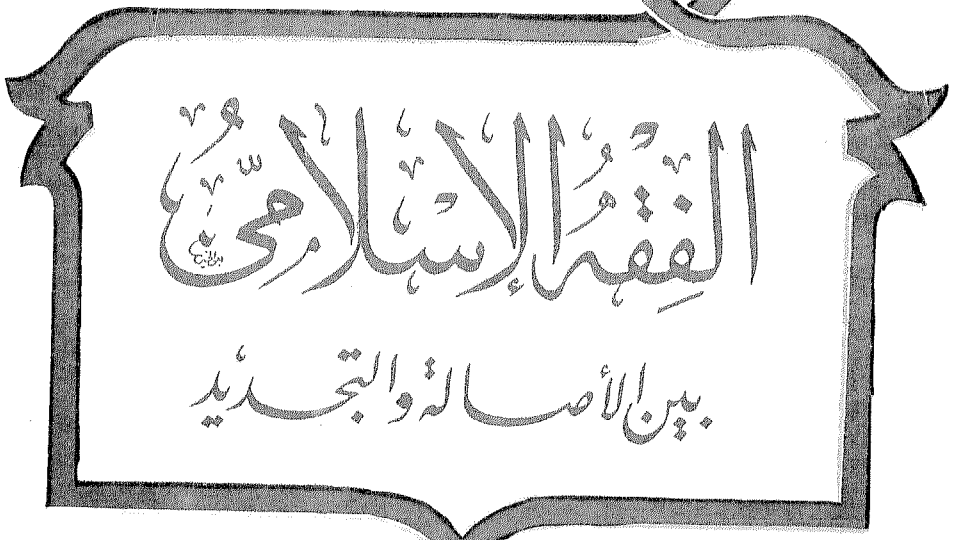 الفِقهُ الإسلاميُّ
بين الأصالة والتجديد